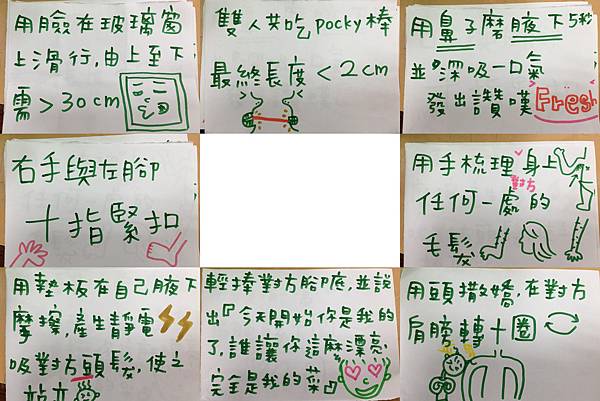 用臉在玻璃窗
上滑行,由上至下
需>30cm
雙人共吃pocky棒
最終長度<2cm
用鼻子磨腋下5秒
並深吸一口氣
發出讚嘆Fresh
右手與左腳
十指緊扣
用手梳理身上
對方
任何一處的
毛髮
用墊板在自己腋下
摩擦,產生靜電
吸對方頭髮,使之
站立
輕捧對方腳底,並說
出『今天開始你是我的
了,誰讓你這麼漂亮,
完全是我的菜』
用頭撒嬌,在對方
肩膀轉十圈